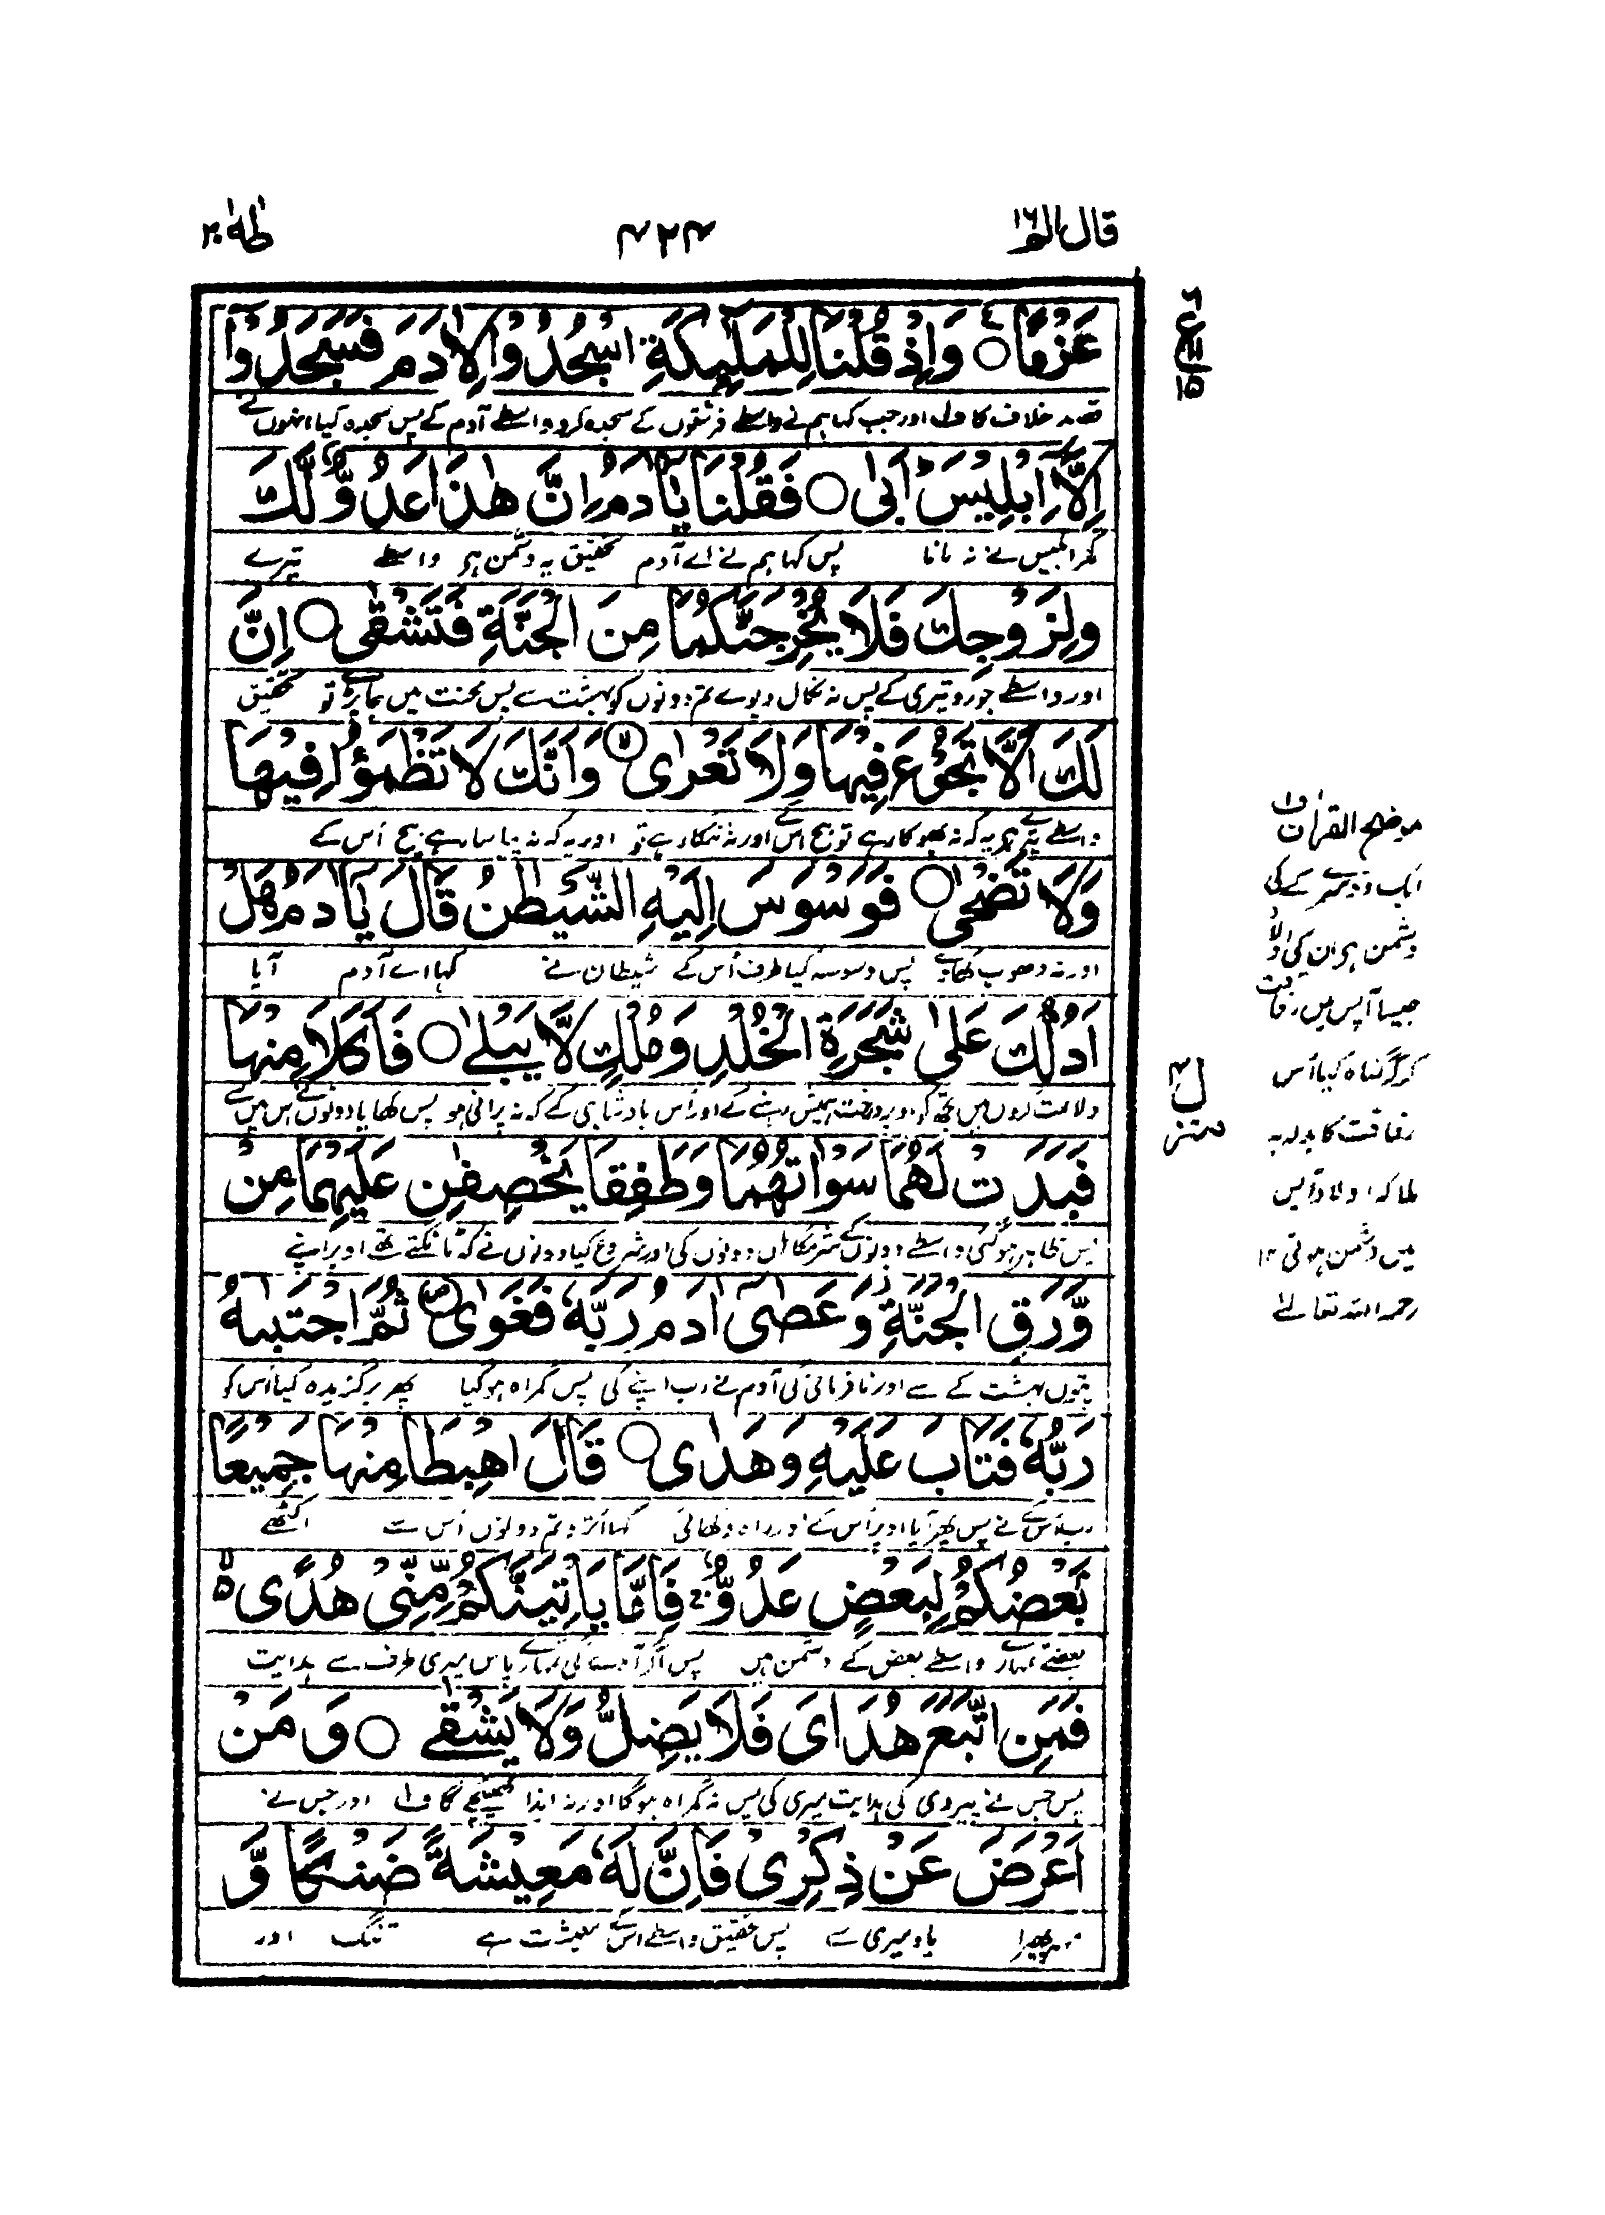 قال الم ۱۶
۴۲۴
طٰهٰ ۲۰
عَزْمًا ○ وَاِذْ قُلْنَا لِلْمَلٰٓئِكَةِ اسْجُدُوْا لِاٰدَمَ فَسَجَدُوْٓا
قصد خلاف کا ف۱ اور جب کہا ہم نے واسطے فرشتوں کے سجدہ کرو واسطے آدم کے پس سجدہ کیا انہوں نے
اِلَّآ اِبْلِيْسَ ؕ اَبٰى ○ فَقُلْنَا يٰٓاٰدَمُ اِنَّ هٰذَا عَدُوٌّ لَّكَ
مگر ابلیس نے نہ مانا پس کہا ہم نے اے آدم تحقیق یہ دشمن ہے واسطے تیرے
وَلِزَوْجِكَ فَلَا يُخْرِجَنَّكُمَا مِنَ الْجَنَّةِ فَتَشْقٰى ○ اِنَّ
اور واسطے جورو تیری کے پس نہ نکال دیوے تم دونوں کو بہشت سے پس محنت میں پڑے تو تحقیق
لَكَ اَلَّا تَجُوْعَ فِيْهَا وَلَا تَعْرٰى ۙ وَاَنَّكَ لَا تَظْمَؤُا فِيْهَا
واسطے تیرے ہے یہ کہ نہ بھوکا رہے تو بیچ اس کے اور نہ ننگا رہے تو اور یہ کہ نہ پیاسا رہے بیچ اُس کے
وَلَا تَضْحٰى ○ فَوَسْوَسَ اِلَيْهِ الشَّيْطٰنُ قَالَ يٰٓاٰدَمُ هَلْ
اور نہ دھوپ کھاوے پس وسوسہ کیا طرف اُس کے شیطان نے کہا اے آدم آیا
اَدُلُّكَ عَلٰى شَجَرَةِ الْخُلْدِ وَمُلْكٍ لَّا يَبْلٰى ○ فَاَكَلَا مِنْهَا
دلالت کروں میں تجھ کو اوپر درخت ہمیش رہنے کے اور اُس بادشاہی کے کہ نہ پرانی ہو پس کھایا دونوں نے اس میں سے
فَبَدَتْ لَهُمَا سَوْاٰتُهُمَا وَطَفِقَا يَخْصِفٰنِ عَلَيْهِمَا مِنْ
پس ظاہر ہوگئی واسطے دونوں کے شرمگاہ اُن دونوں کی اور شروع کیا دونوں نے کہ ٹانکتے تھے اوپر اپنے
وَّرَقِ الْجَنَّةِ وَعَصٰٓى اٰدَمُ رَبَّهٗ فَغَوٰى ۖ ثُمَّ اجْتَبٰىهُ
پتوں بہشت کے سے اور نافرمانی کی آدم نے رب اپنے کی پس گمراہ ہوگیا پھر برگزیدہ کیا اُس کو
رَبُّهٗ فَتَابَ عَلَيْهِ وَهَدٰى ○ قَالَ اهْبِطَا مِنْهَا جَمِيْعًا
رب اُس کے نے پس پھر آیا اوپر اُس کے اور راہ دکھائی کہا اترو تم دونوں اُس سے اکٹھے
بَعْضُكُمْ لِبَعْضٍ عَدُوٌّ ۚ فَاِمَّا يَاْتِيَنَّكُمْ مِّنِّيْ هُدًى ۵ۙ
بعضے تمہارے واسطے بعض کے دشمن ہیں پس اگر آوے گی تمہارے پاس میری طرف سے ہدایت
فَمَنِ اتَّبَعَ هُدَايَ فَلَا يَضِلُّ وَلَا يَشْقٰى ○ وَمَنْ
پس جس نے پیروی کی ہدایت میری کی پس نہ گمراہ ہوگا اور نہ ایذا کھینچے گا ف۱ اور جس نے
اَعْرَضَ عَنْ ذِكْرِيْ فَاِنَّ لَهٗ مَعِيْشَةً ضَنْكًا وَّ
منہ پھیرا یاد میری سے پس تحقیق واسطے اس کے معیشت ہے تنگ اور
ع
۱۵
موضح القرآن ف۱
ایک دوسرے کے
دشمن ہو ان کی اولاد
جیسا آپس میں رفاقت
کر کر گناہ کیا اُس
رفاقت کا بدلہ یہ
ملا کہ اولاد آپس
میں دشمن ہوتی ۱۲
رحمہ اللہ تعالےٰ
منزل ۴